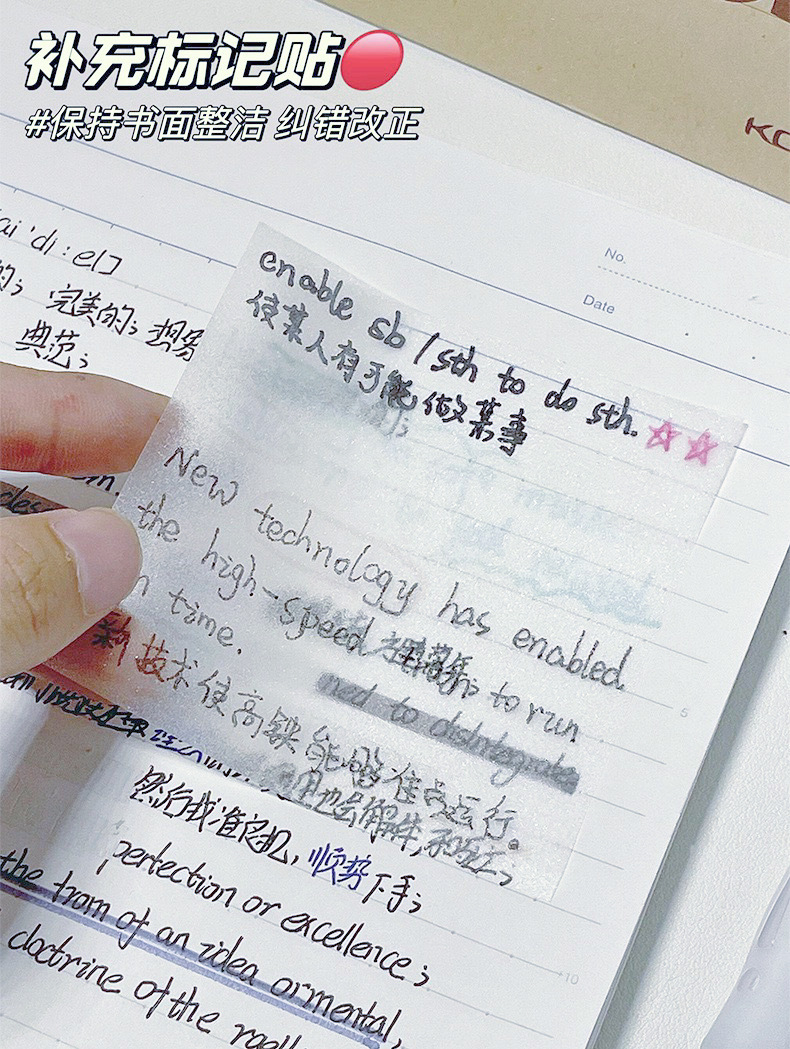 补充标记贴
#保持书面整洁 纠错改正
No.
Date
enable sb / sth to do sth. ☆☆
使某人有可能做某事
完美的;
典范;
New technology has enabled
the high-speed to run
time.
新技术使高铁能够准点运行。
ned to disintegrate
解体,
然后找准良机,顺势下手;
perfection or excellence;
the from of an idea or mental,
doctrine of the
5
10